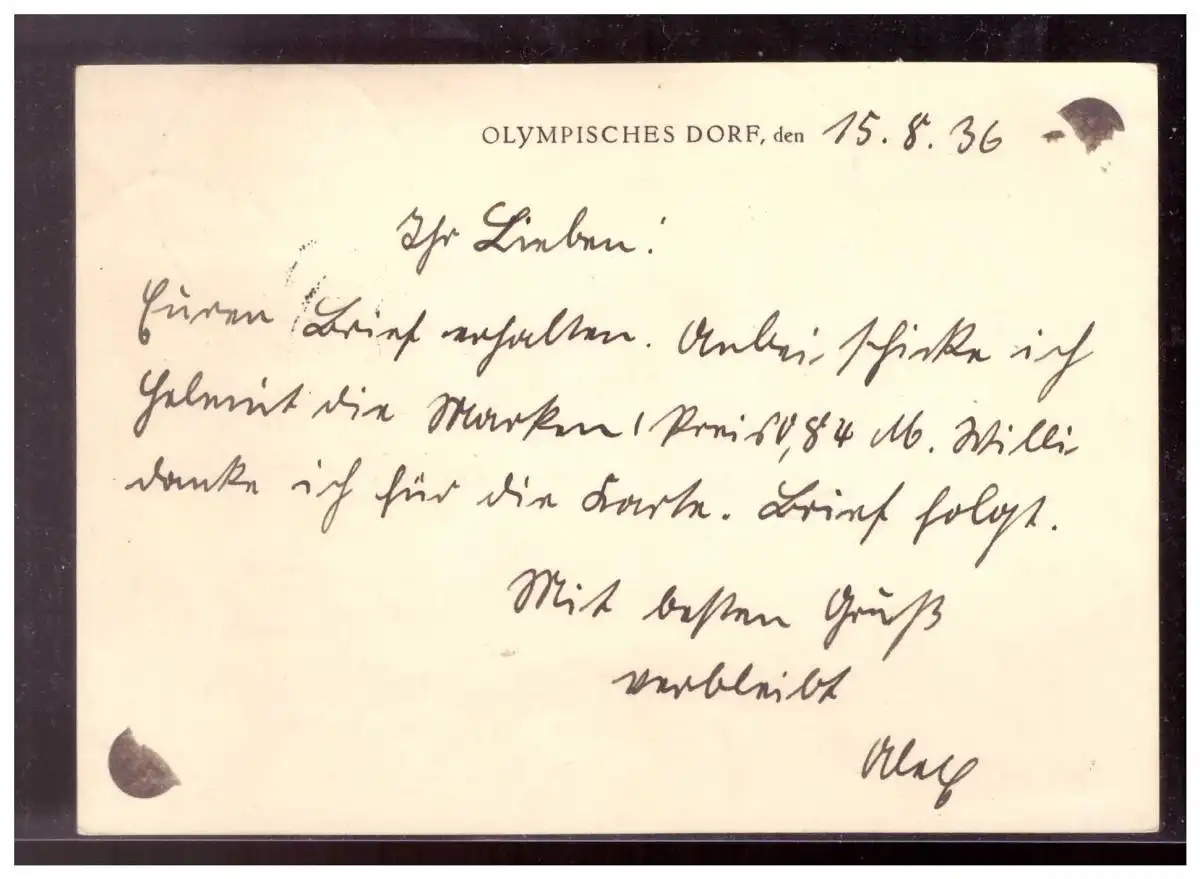 OLYMPISCHES DORF, den 15.8.36
Ihr Lieben!
Euren Brief erhalten. Anbei schicke ich
Helmut die Marken! Preis 0,84 M. Willi
danke ich für die Karte. Brief folgt.
Mit besten Gruß
verbleibt
Alex